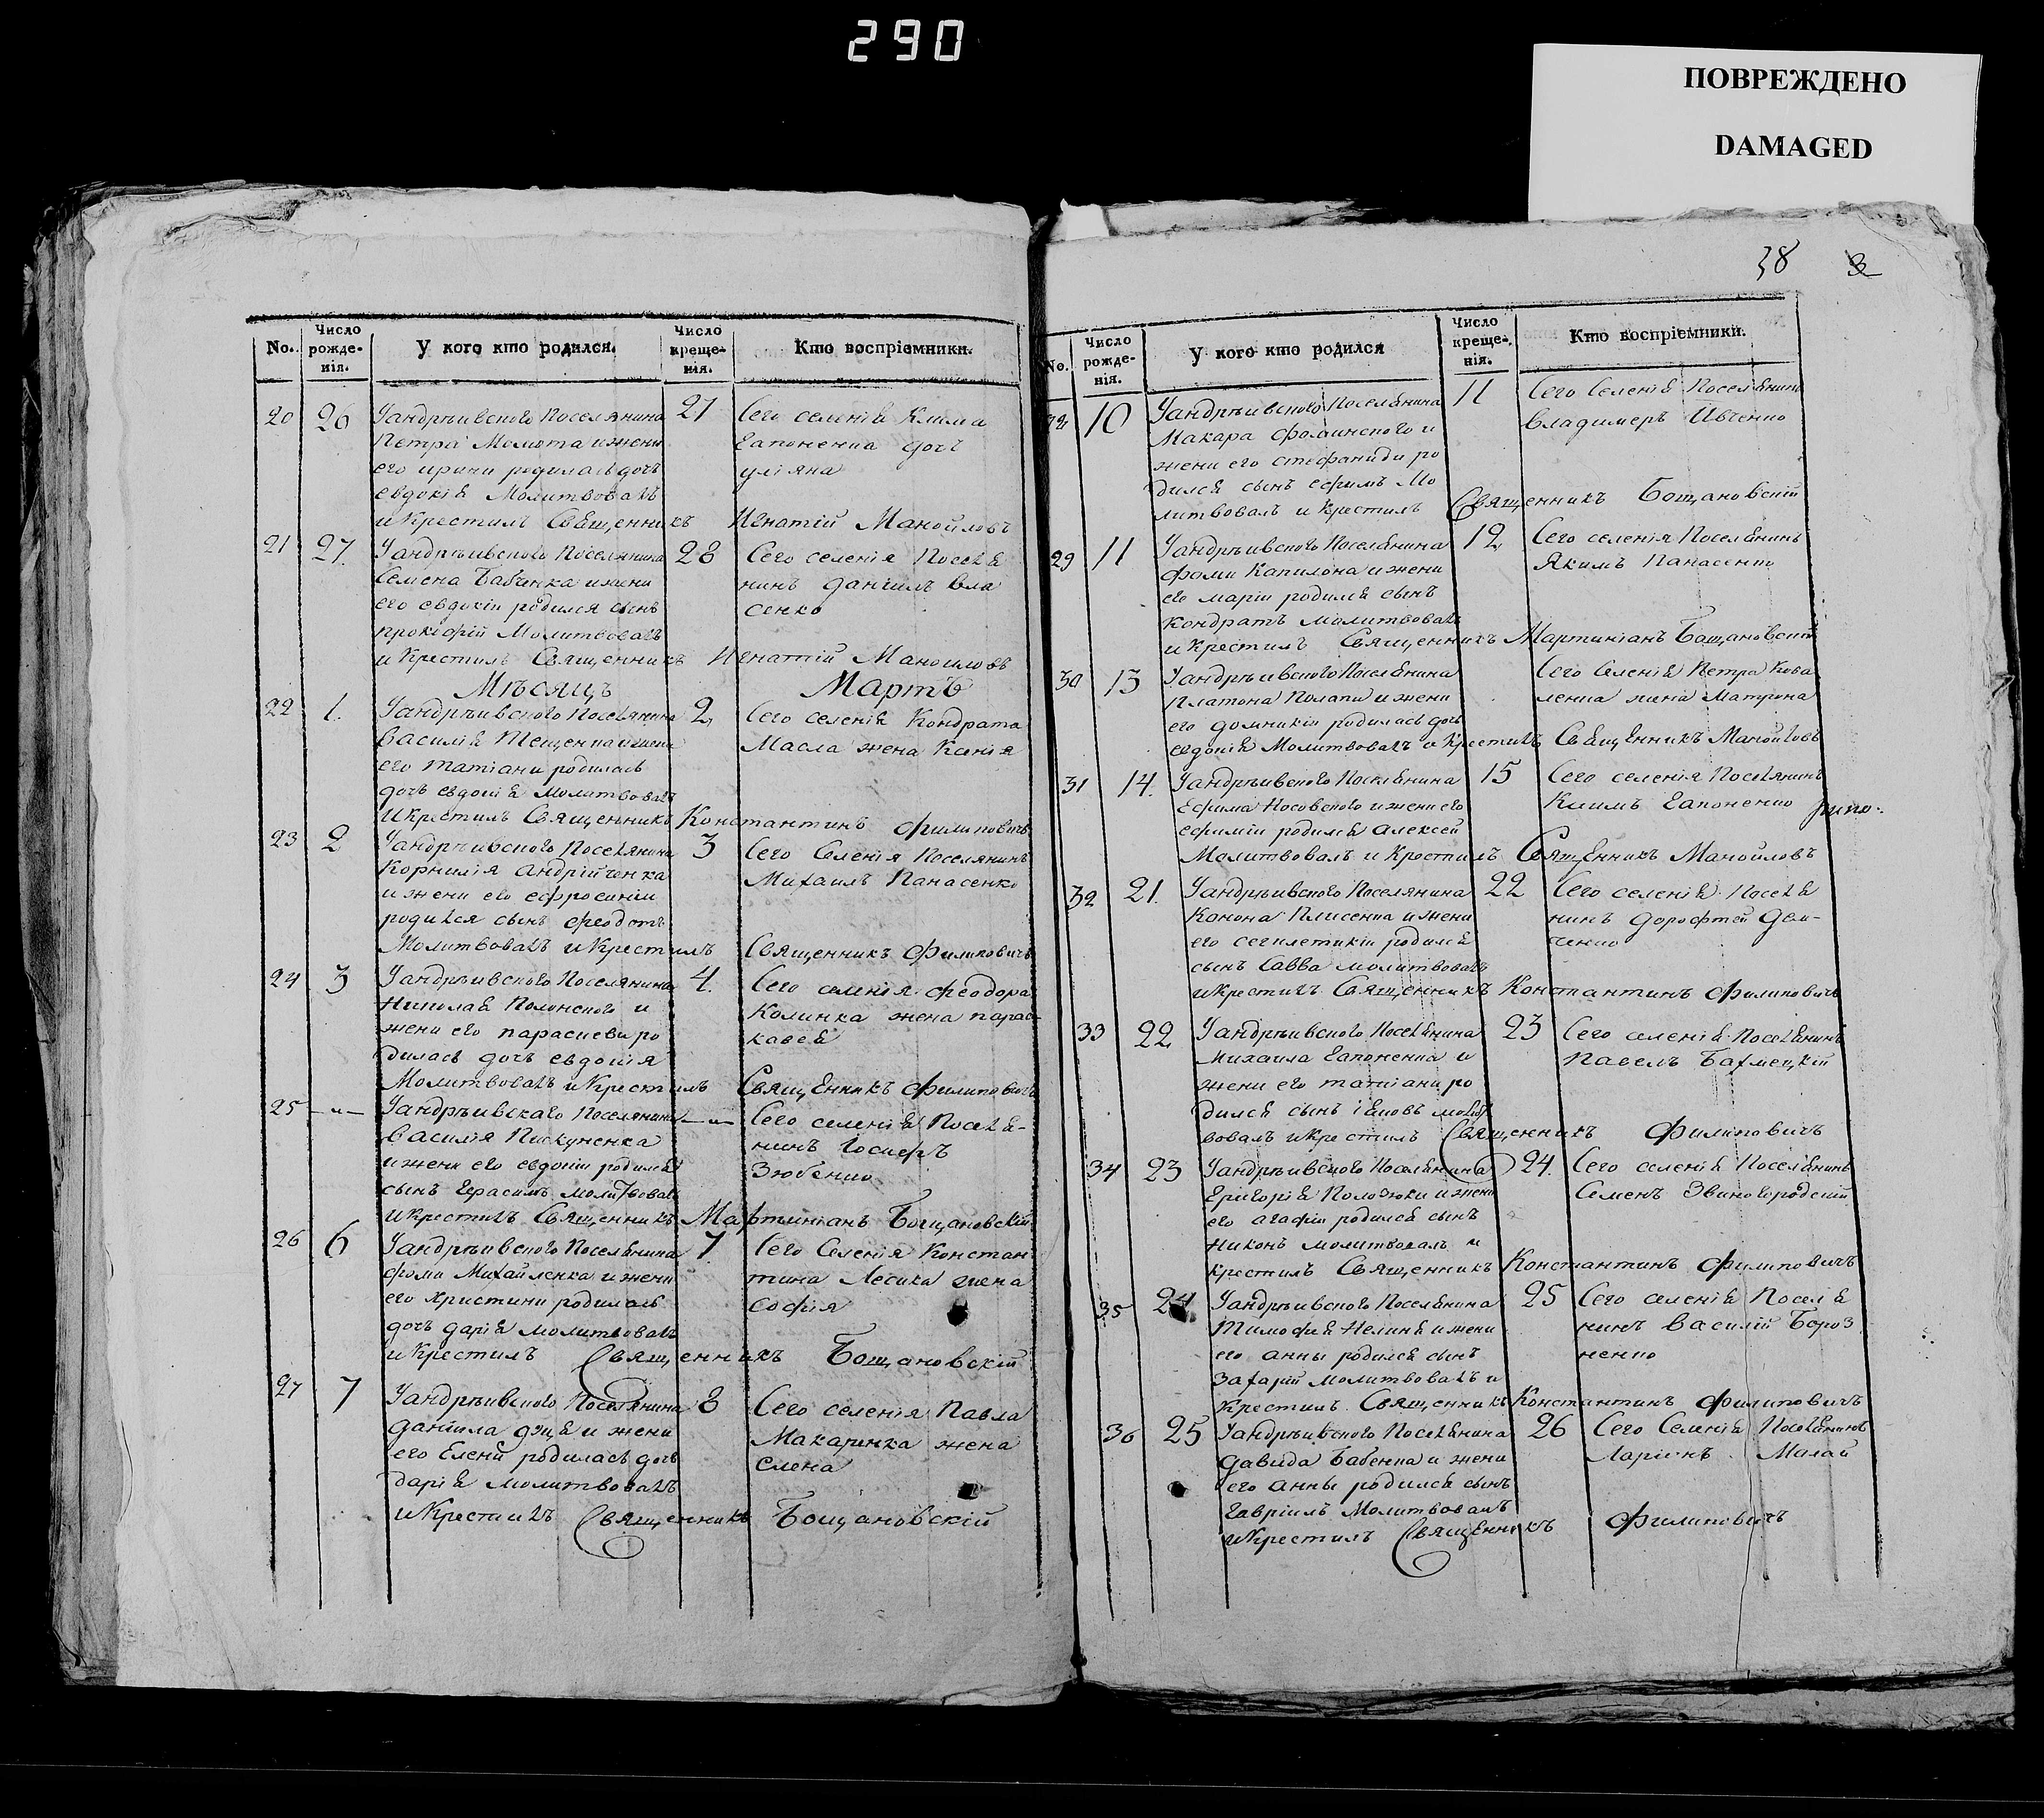 290
ПОВРЕЖДЕНО
DAMAGED
38
No. Число рожденія. У кого кто родился. Число крещенія. Кто воспріемники.
20 26 Уандрѣивского Поселянина 27 Сего селенія Клима
Петра Молота и жени Гапоненка дочъ
его ирини родилась дочъ уліяна
евдокія Молитвовалъ
и Крестилъ Священникъ Игнатій Манойловъ
21 27. Уандрѣивского Поселянина 28 Сего селенія Поселя
Семена Бабченка и жени нинъ даніилъ вла
его евдокіи родился сынъ сенко
прокофій Молитвовалъ
и Крестилъ Священникъ Игнатій Маноиловъ
Мѣсяцъ Мартъ
22 1. Уандрѣивского Поселянина 2 Сего селенія Кондрата
василія Тещенка и жени Масла жена Ксенія
его татіани родилась
дочъ евдокія Молитвовалъ
и Крестилъ Священникъ Константинъ филиповичъ
23 2 Уандрѣивского Поселянина 3 Сего Селенія Поселянинъ
Корнилія андрійченка Михаилъ Панасенко
и жени его ефросиніи
родился сынъ феодотъ
Молитвовалъ и Крестилъ Священникъ Филиповичъ
24 3 Уандрѣивского Поселянина 4. Сего селенія феодора
Николая Полонского и Колинка жена парас-
жени его парасиеви ро кавея
дилась дочъ евдокія
Молитвовалъ и Крестилъ Священникъ Филиповичъ
25 -"- Уандрѣивскаго Поселянина -"- Сего селенія Поселя-
василія Пискуненка нинъ Іосифъ
и жени его евдокіи родился Зюбенко
сынъ Герасимъ молитвовалъ
и Крестилъ Священникъ Мартиніанъ Бощановскій
26 6 Уандрѣивского Поселянина 7. Сего Селенія Констан
фоми Михайленка и жени тина Лесика жена
его христини родилась софія
дочъ дарія молитвовалъ
и Крестилъ Священникъ Бощановскій
27 7 Уандрѣивского Поселянина 8 Сего селенія Павла
даніила и жени Макаренка жена
его Елени родилась дочъ елена
дарія молитвовалъ
и Крестилъ Священникъ Бощановскій
No. Число рожденія. У кого кто родился Число крещенія. Кто воспріемники.
10 Уандрѣивского Поселянина 11 Сего Селенія Поселянинъ
Макара фоминского и владимеръ Ивченко
жени его стефаниди ро
дился сынъ ефимъ Мо
литвовалъ и крестилъ Священникъ Бощановскій
29 11 Уандрѣивского Поселянина 12 Сего селенія Поселянинъ
фоми Капилона и жени Якимъ Панасенко
его маріи родился сынъ
кондратъ молитвовалъ
и крестилъ Священникъ Мартиніанъ Бощановскій
30 13 Уандрѣивского Поселянина Сего Селенія Петра Кова
Платона Полапи и жени ленка жена Матрона
его домникіи родилась дочъ
евдокія Молитвовалъ и Крестилъ Священникъ Манойловъ
31 14. Уандрѣивского Поселянина 15 Сего селенія Поселянинъ
Ефима Носовского и жени его Климъ Гапоненко
ефиміи родился алексей
Молитвовалъ и Крестилъ Священникъ Манойловъ
32 21. Уандрѣивского Поселянина 22 Сего селенія Поселя
Конона Плисенка и жени нинъ дорофтей Дем-
его секлетикіи родился ченко
сынъ Савва молитвовалъ
и крестилъ Священникъ Константинъ Филиповичъ
33 22 Уандрѣивского Поселянина 23 Сего селенія Поселянинъ
Михаила Гапоненка и Павелъ Бахмецкій
жени его татіани ро
дился сынъ іяковъ молит
вовалъ и крестилъ Священникъ Филиповичъ
34 23 Уандрѣивского Поселянина 24. Сего селенія Поселянинъ
Григорія Полозюки и жени Семенъ Звиногородскій
его агафіи родился сынъ
Никонъ молитвовалъ и
крестилъ Священникъ Константинъ Филиповичъ
35 24 Уандрѣивского Поселянина 25 Сего селенія Поселя
Тимофея Нелиня и жени нинъ василій Бороз
его анны родился сынъ ненко
Захарій молитвовалъ и
крестилъ Священникъ Константинъ Филиповичъ
36 25 Уандрѣивского Поселянина 26 Сего Селенія Поселянинъ
давида Бабенка и жени Ларіонъ Малай
его анны родился сынъ
Гавріилъ Молитвовалъ
и Крестилъ Священникъ Филиповичъ